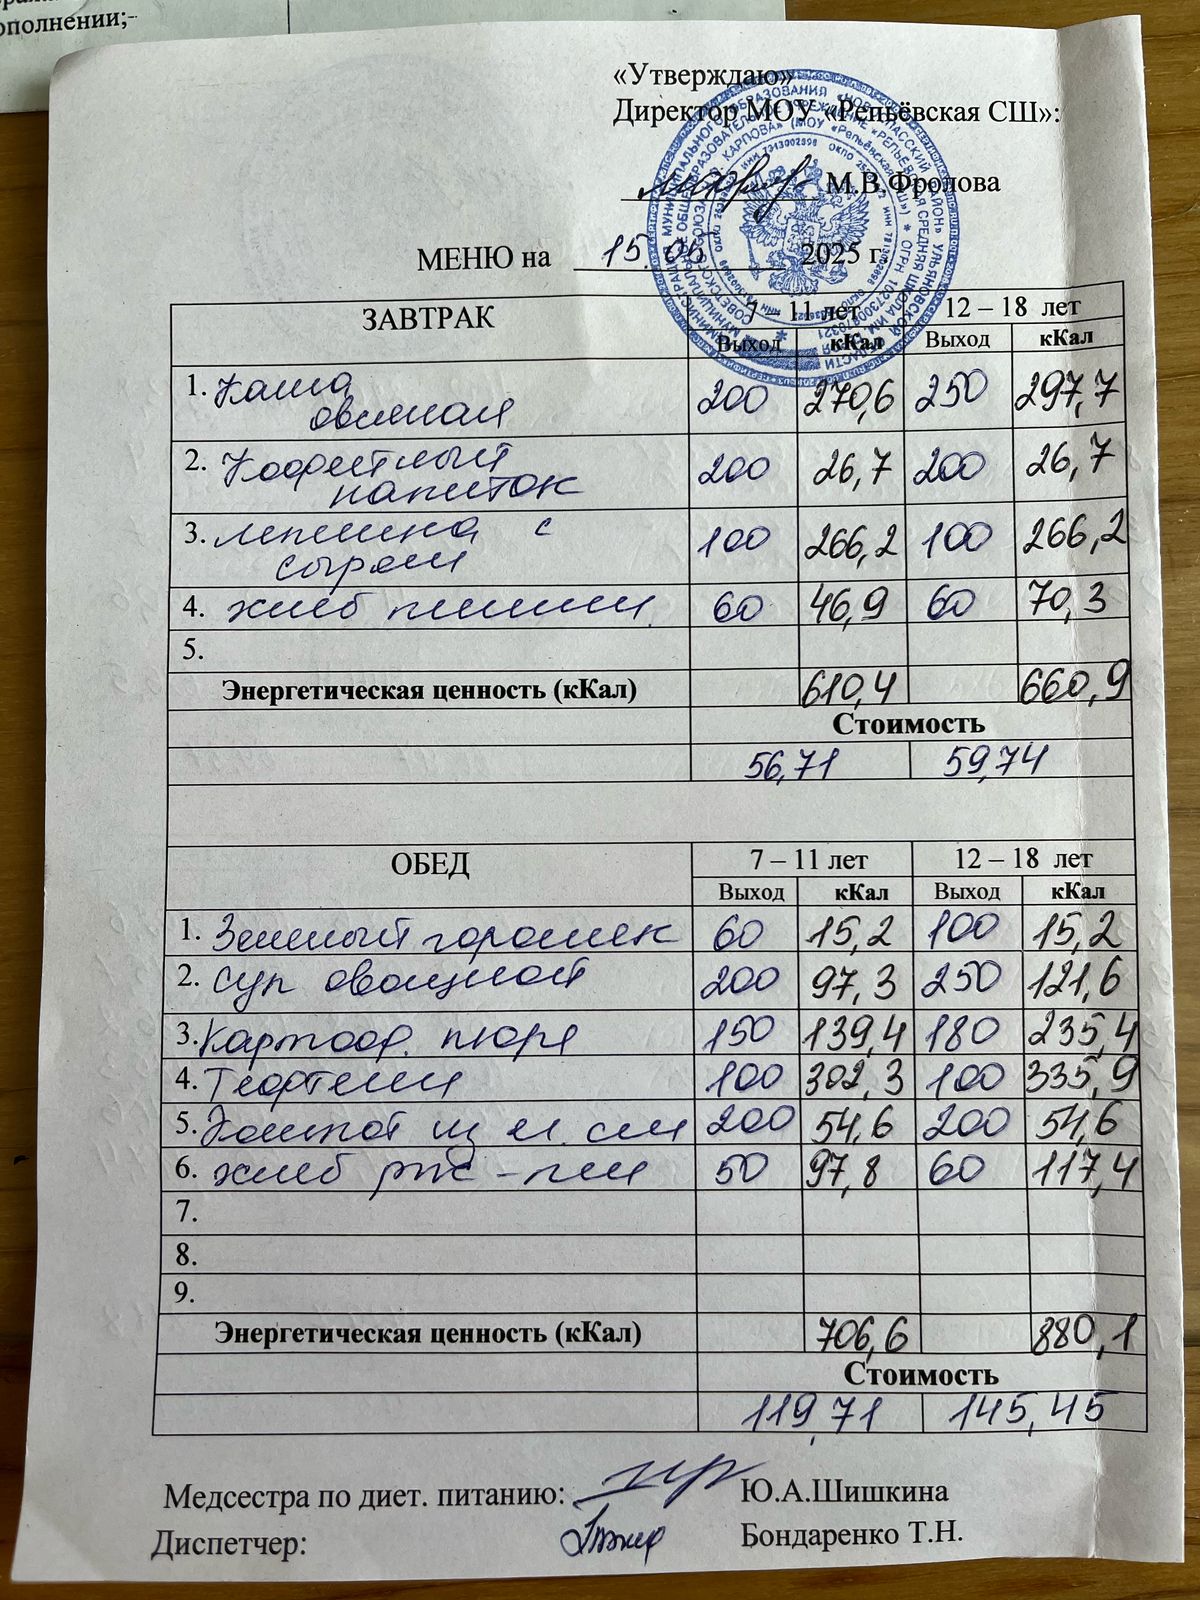 ополнении;-
«Утверждаю»
Директор МОУ «Репьёвская СШ»:
М.В.Фролова
МЕНЮ на 15.05 2025 г.
ЗАВТРАК 7 – 11 лет 12 – 18 лет
Выход кКал Выход кКал
1. Каша овсяная 200 270,6 250 297,7
2. Кофейный напиток 200 26,7 200 26,7
3. лепешка с сыром 100 266,2 100 266,2
4. хлеб пшен 60 46,9 60 70,3
5.
Энергетическая ценность (кКал) 610,4 660,9
Стоимость
56,71 59,74
ОБЕД 7 – 11 лет 12 – 18 лет
Выход кКал Выход кКал
1. Зеленый горошек 60 15,2 100 15,2
2. суп овощной 200 97,3 250 121,6
3. Картоф. пюре 150 139,4 180 235,4
4. Тефтели 100 302,3 100 335,9
5. Компот из см 200 54,6 200 54,6
6. хлеб рж-пш 50 97,8 60 117,4
7.
8.
9.
Энергетическая ценность (кКал) 706,6 880,1
Стоимость
119,71 145,45
Медсестра по диет. питанию: Ю.А.Шишкина
Диспетчер: Бондаренко Т.Н.